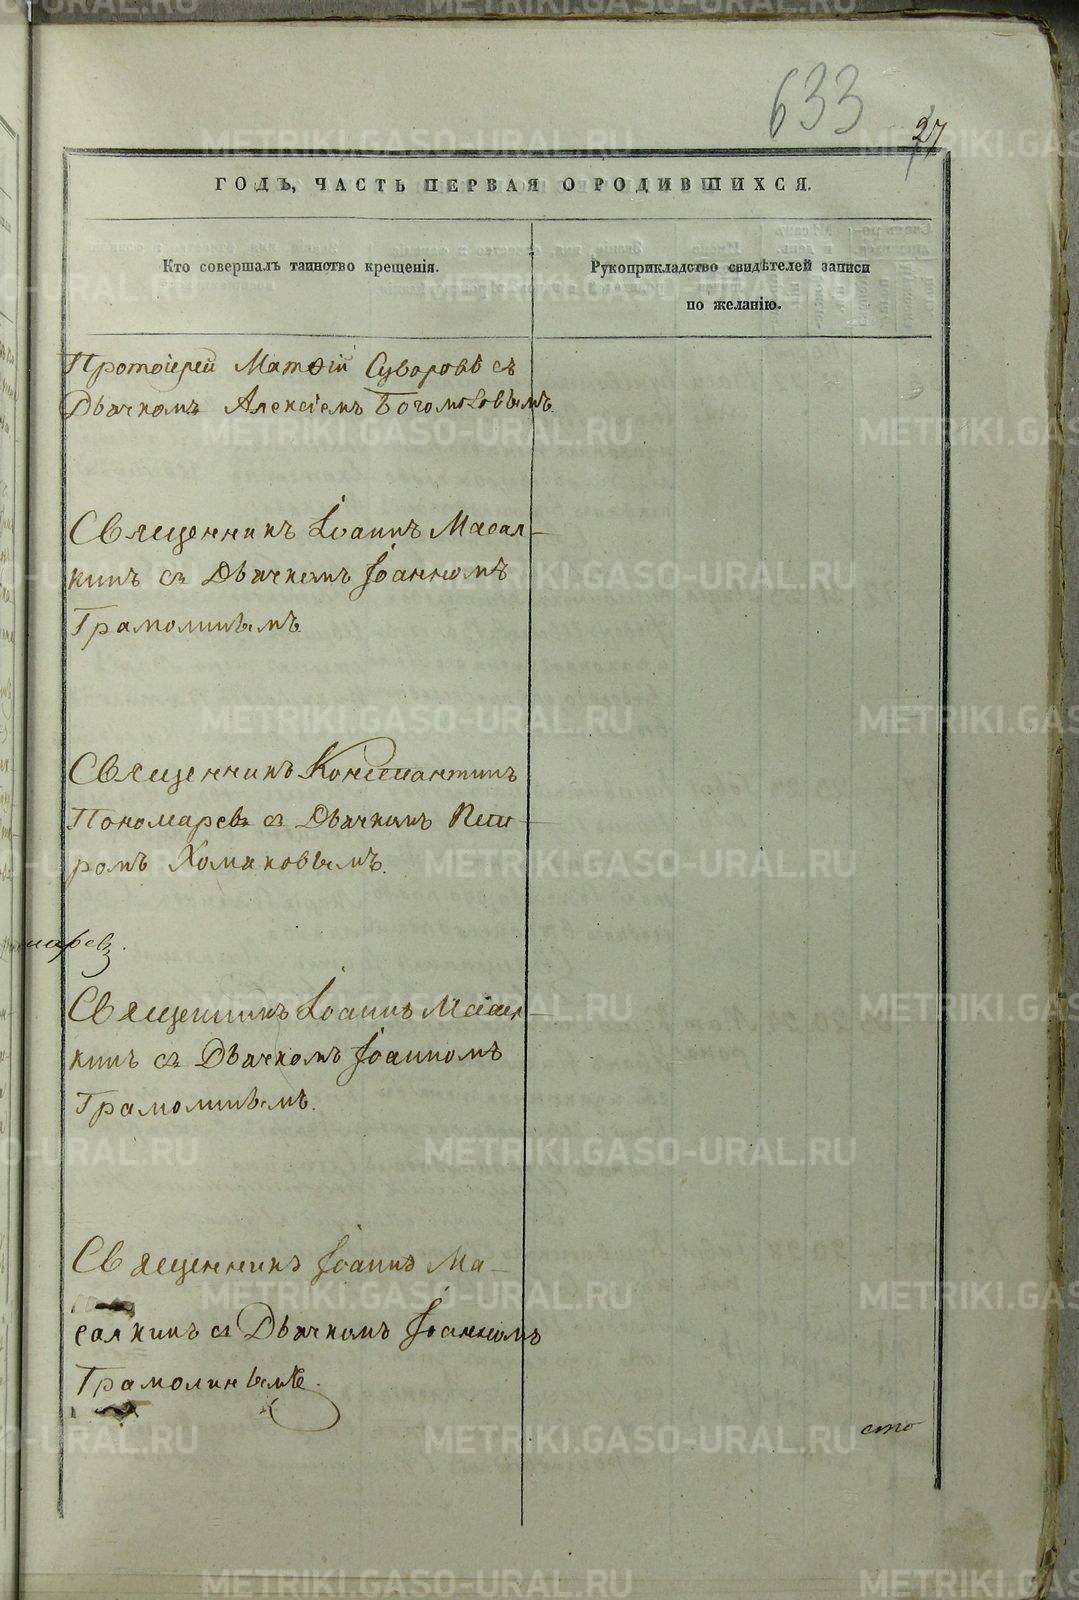 633
27
ГОДЪ, ЧАСТЬ ПЕРВАЯ О РОДИВШИХСЯ.
Кто совершалъ таинство крещенія.
Рукоприкладство свидѣтелей записи
по желанію.
Протоіерей Матѳій Суворовъ съ
Дьячкомъ Алексіемъ Богомоловымъ.
Священникъ Іоаннъ Масал-
кинъ съ Дьячкомъ Іоанномъ
Грамолинымъ.
Священникъ Константинъ
Пономаревъ съ Дьячкомъ Пет-
ромъ Хомяковымъ.
маревъ.
Священникъ Іоаннъ Масал-
кинъ съ Дьячкомъ Іоанномъ
Грамолинымъ.
Священникъ Іоаннъ Ма-
салкинъ съ Дьячкомъ Іоанномъ
Грамолинымъ.
сто
METRIKI.GASO-URAL.RU